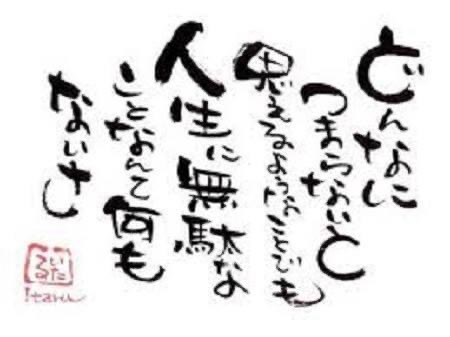 どんなに
つまらないと
思えるようなことでも
人生に無駄な
ことなんて何も
ないさ
いたる
Itaru